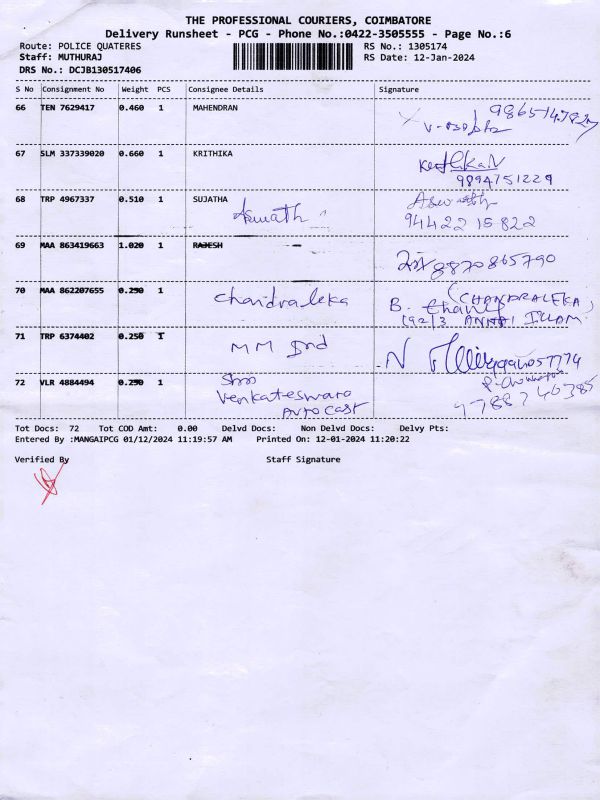 THE PROFESSIONAL COURIERS, COIMBATORE
Delivery Runsheet - PCG - Phone No.:0422-3505555 - Page No.:6
Route: POLICE QUATERES RS No.: 1305174
Staff: MUTHURAJ RS Date: 12-Jan-2024
DRS No.: DCJB130517406
S No Consignment No Weight PCS Consignee Details Signature
66 TEN 7629417 0.460 1 MAHENDRAN
67 SLM 337339020 0.660 1 KRITHIKA
9894751229
68 TRP 4967337 0.510 1 SUJATHA
Aswath
94422 15822
69 MAA 863419663 1.020 1 RAJESH 8870865790
70 MAA 862207655 0.290 1 Chandraleka B. (CHANDRALEKA)
71 TRP 6374402 0.250 1 MM Ind
72 VLR 4884494 0.290 1 Shri
Venkateswara
Auto Cast
Tot Docs: 72 Tot COD Amt: 0.00 Delvd Docs: Non Delvd Docs: Delvy Pts:
Entered By :MANGAIPCG 01/12/2024 11:19:57 AM Printed On: 12-01-2024 11:20:22
Verified By Staff Signature